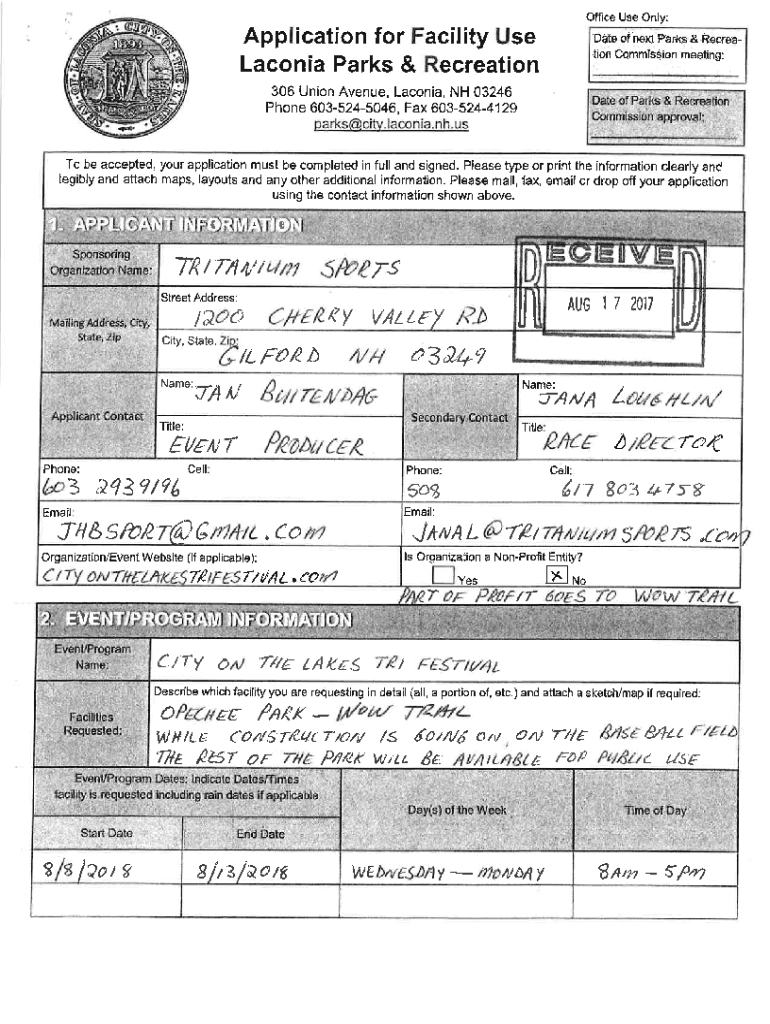 Application for Facility Use
Laconia Parks & Recreation
306 Union Avenue, Laconia, NH 03246
Phone 603-524-5046, Fax 603-524-4129
parks@city.laconia.nh.us
Office Use Only:
Date of next Parks & Recrea-
tion Commission meeting:
Date of Parks & Recreation
Commission approval:
To be accepted, your application must be completed in full and signed. Please type or print the information clearly and
legibly and attach maps, layouts and any other additional information. Please mail, fax, email or drop off your application
using the contact information shown above.
1. APPLICANT INFORMATION
RECEIVED
AUG 17 2017
Sponsoring
Organization Name:
TRITANIUM SPORTS
Mailing Address, City,
State, Zip
Street Address:
1200 CHERRY VALLEY RD
City, State, Zip:
GILFORD NH 03249
Applicant Contact
Name: JAN BUITENDAG
Title:
EVENT PRODUCER
Secondary Contact
Name:
JANA LOUGHLIN
Title:
RACE DIRECTOR
Phone: Cell:
603 2939196
Phone: Cell:
508 617 803 4758
Email:
JHBSPORT@GMAIL.COM
Email:
JANAL@TRITANIUMSPORTS.COM
Organization/Event Website (if applicable):
CITYONTHELAKESTRIFESTIVAL.COM
Is Organization a Non-Profit Entity?
Yes X No
PART OF PROFIT GOES TO WOW TRAIL
2. EVENT/PROGRAM INFORMATION
Event/Program
Name:
CITY ON THE LAKES TRI FESTIVAL
Facilities
Requested:
Describe which facility you are requesting in detail (all, a portion of, etc.) and attach a sketch/map if required:
OPECHEE PARK - WOW TRAIL
WHILE CONSTRUCTION IS GOING ON, ON THE BASEBALL FIELD
THE REST OF THE PARK WILL BE AVAILABLE FOR PUBLIC USE
Event/Program Dates: Indicate Dates/Times
facility is requested including rain dates if applicable
Day(s) of the Week
Time of Day
Start Date End Date
8/8/2018 8/13/2018 WEDNESDAY — MONDAY 8AM - 5PM